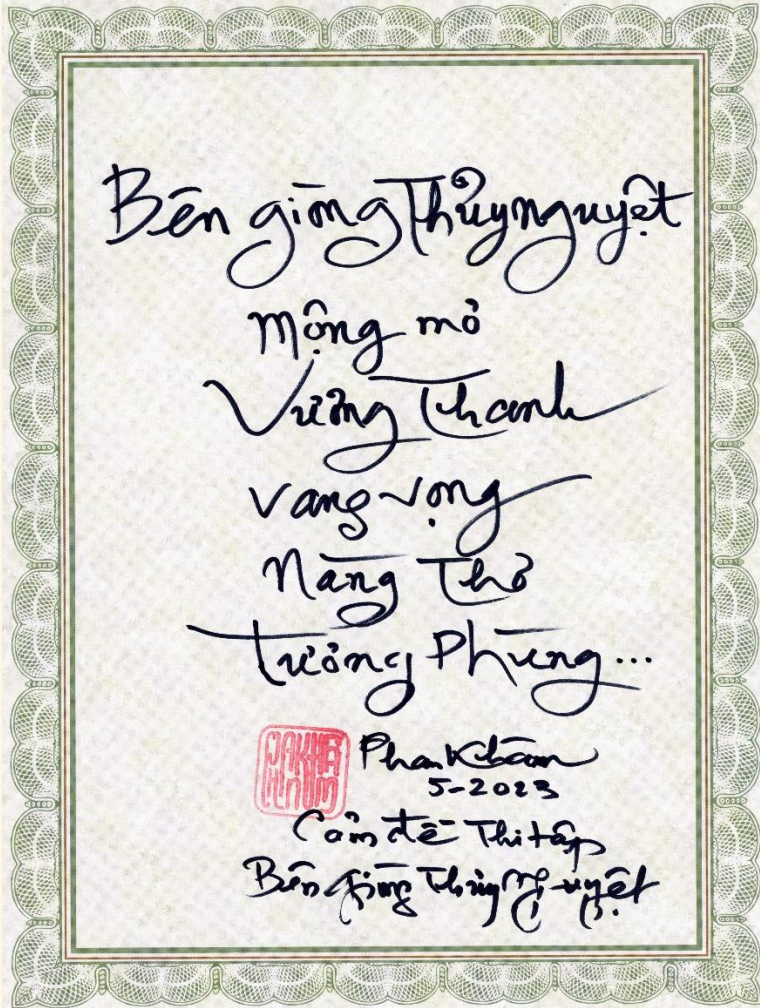 Bên giòng Thủy nguyệt
Mộng mơ
Vương Thanh
vang vọng
Nàng Thơ
tương Phùng...
Phan Khâm
5-2023
Cảm đề Thi tập
Bên giòng Thủy Nguyệt